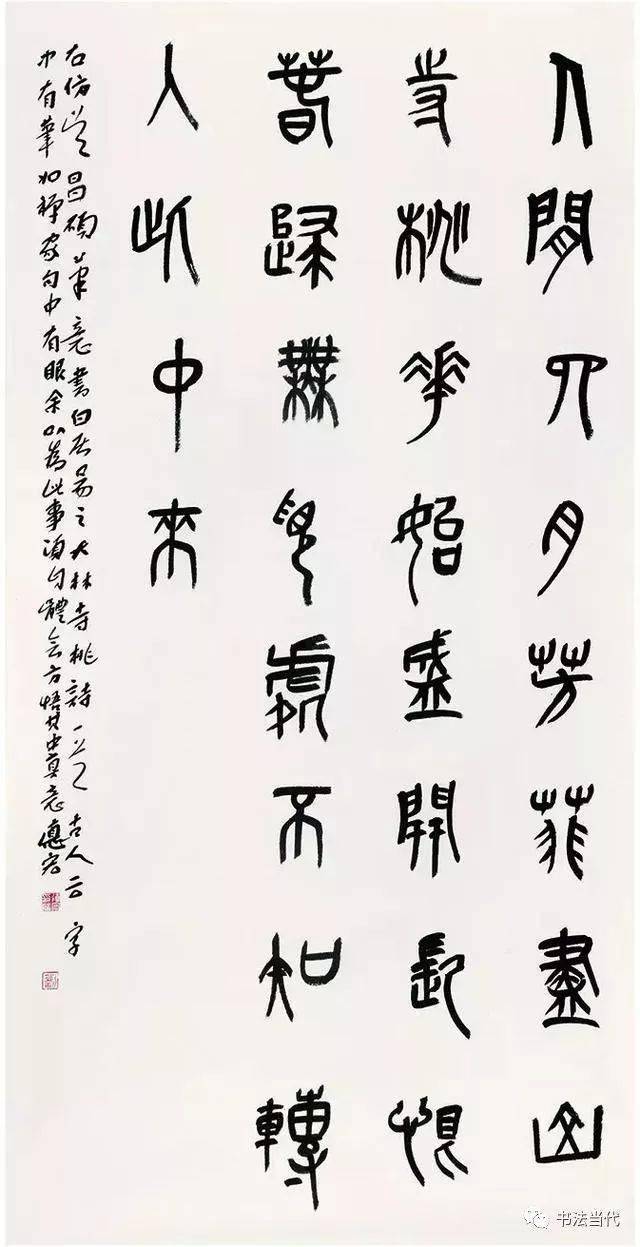 人間四月芳菲盡山
寺桃花始盛開長恨
春歸無覓處不知轉
入此中來
右仿吳昌碩筆意書白居易之大林寺桃詩一首古人云字
中有筆如禪家句中有眼余以為此事須自體會方悟其中真意德宏
书法当代